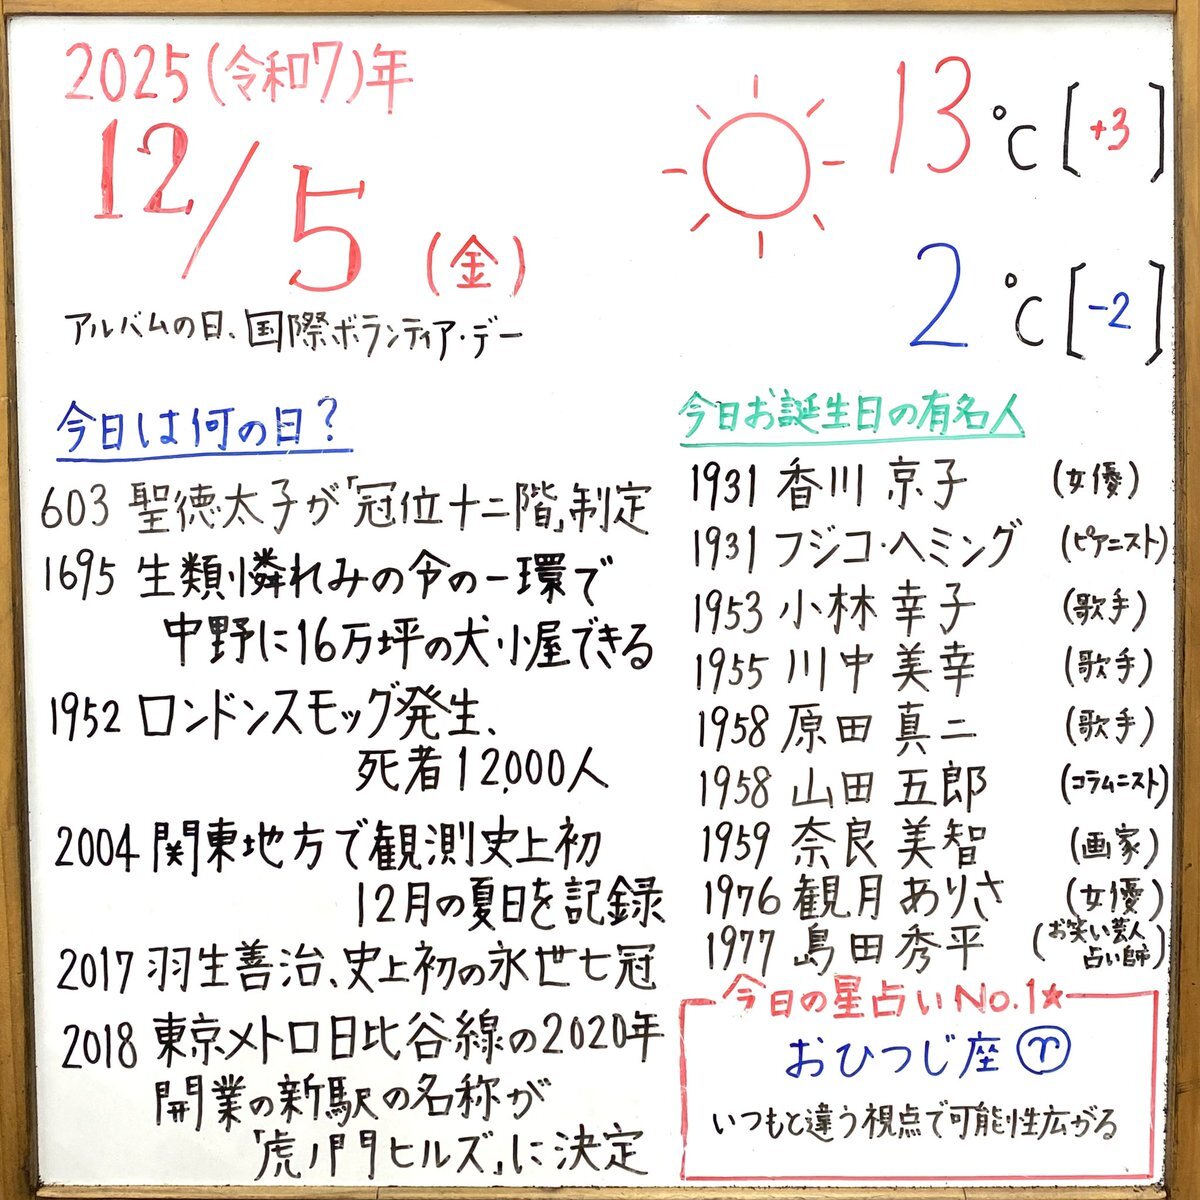 2025(令和7)年
12/5(金)
アルバムの日、国際ボランティア・デー
13℃[+3]
2℃[-2]
今日は何の日?
603 聖徳太子が「冠位十二階」制定
1695 生類憐れみの令の一環で
中野に16万坪の犬小屋できる
1952 ロンドンスモッグ発生、
死者12,000人
2004 関東地方で観測史上初
12月の夏日を記録
2017 羽生善治、史上初の永世七冠
2018 東京メトロ日比谷線の2020年
開業の新駅の名称が
「虎ノ門ヒルズ」に決定
今日お誕生日の有名人
1931 香川 京子 (女優)
1931 フジコ・ヘミング (ピアニスト)
1953 小林 幸子 (歌手)
1955 川中 美幸 (歌手)
1958 原田 真二 (歌手)
1958 山田 五郎 (コラムニスト)
1959 奈良 美智 (画家)
1976 観月 ありさ (女優)
1977 島田 秀平 (お笑い芸人
占い師)
今日の星占いNo.1★
おひつじ座 ♈
いつもと違う視点で可能性広がる